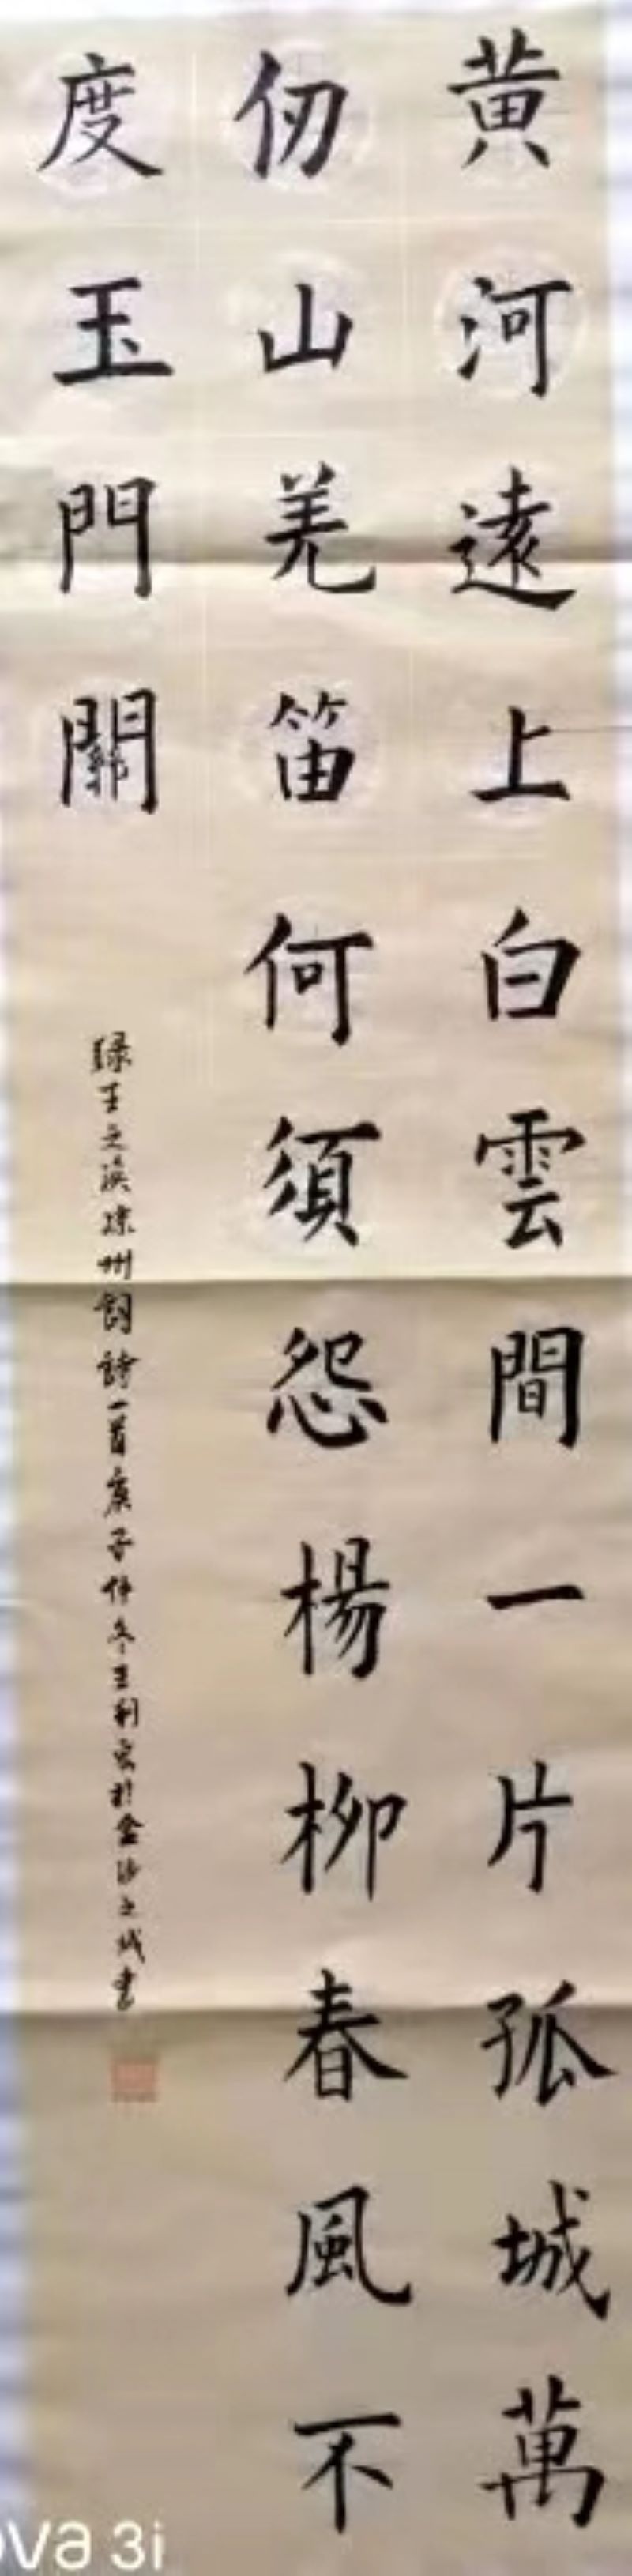 黄河遠上白雲間一片孤城萬
仞山羌笛何須怨楊柳春風不
度玉門關
録王之渙涼州詞詩一首庚子仲冬王利宏於金沙之城書
ova 3i